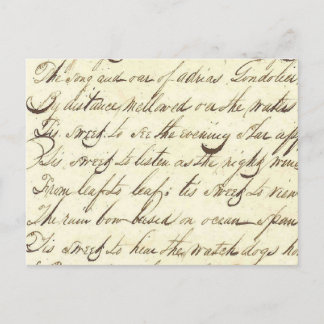 The Song and oar of adrias Gondolier
By distance mellowed oer the waters
Tis sweet to see the evening star app
Tis sweet to listen as the nightly wind
From leaf to leaf; tis sweet to view
The rain bow based on ocean span
Tis sweet to hear the watch dogs ho